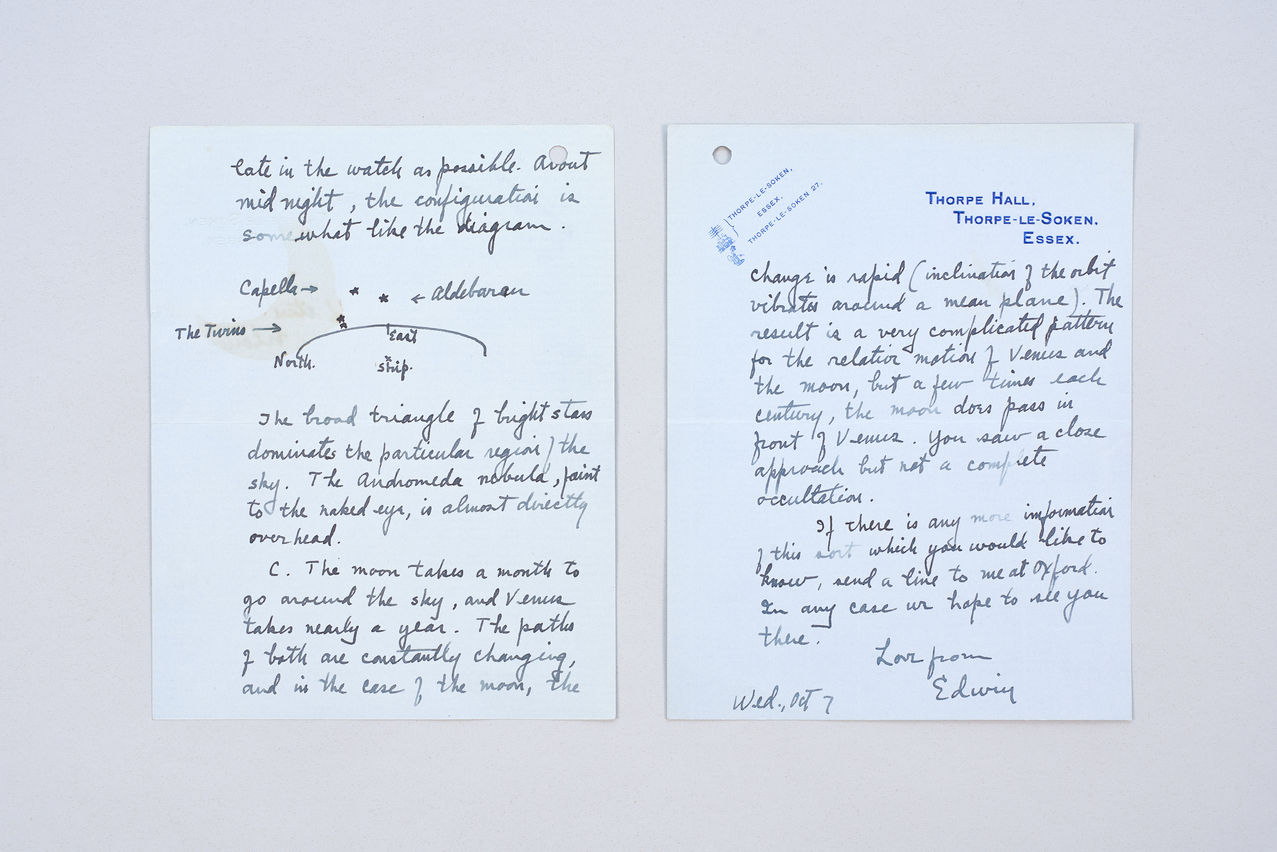 late in the watch as possible. About
mid night, the configuration is
somewhat like the diagram.
Capella → ← Aldebaran
The Twins →
East
North. ship.
The broad triangle of bright stars
dominates the particular region of the
sky. The Andromeda nebula, faint
to the naked eye, is almost directly
overhead.
C. The moon takes a month to
go around the sky, and Venus
takes nearly a year. The paths
of both are constantly changing,
and in the case of the moon, the
THORPE-LE-SOKEN,
ESSEX.
THORPE-LE-SOKEN 27.
THORPE HALL,
THORPE-LE-SOKEN,
ESSEX.
change is rapid (inclination of the orbit
vibrates around a mean plane). The
result is a very complicated pattern
for the relative motion of Venus and
the moon, but a few times each
century, the moon does pass in
front of Venus. You saw a close
approach but not a complete
occultation.
If there is any more information
of this sort which you would like to
know, send a line to me at Oxford.
In any case we hope to see you
there.
Love from
Edwin
Wed., Oct 7